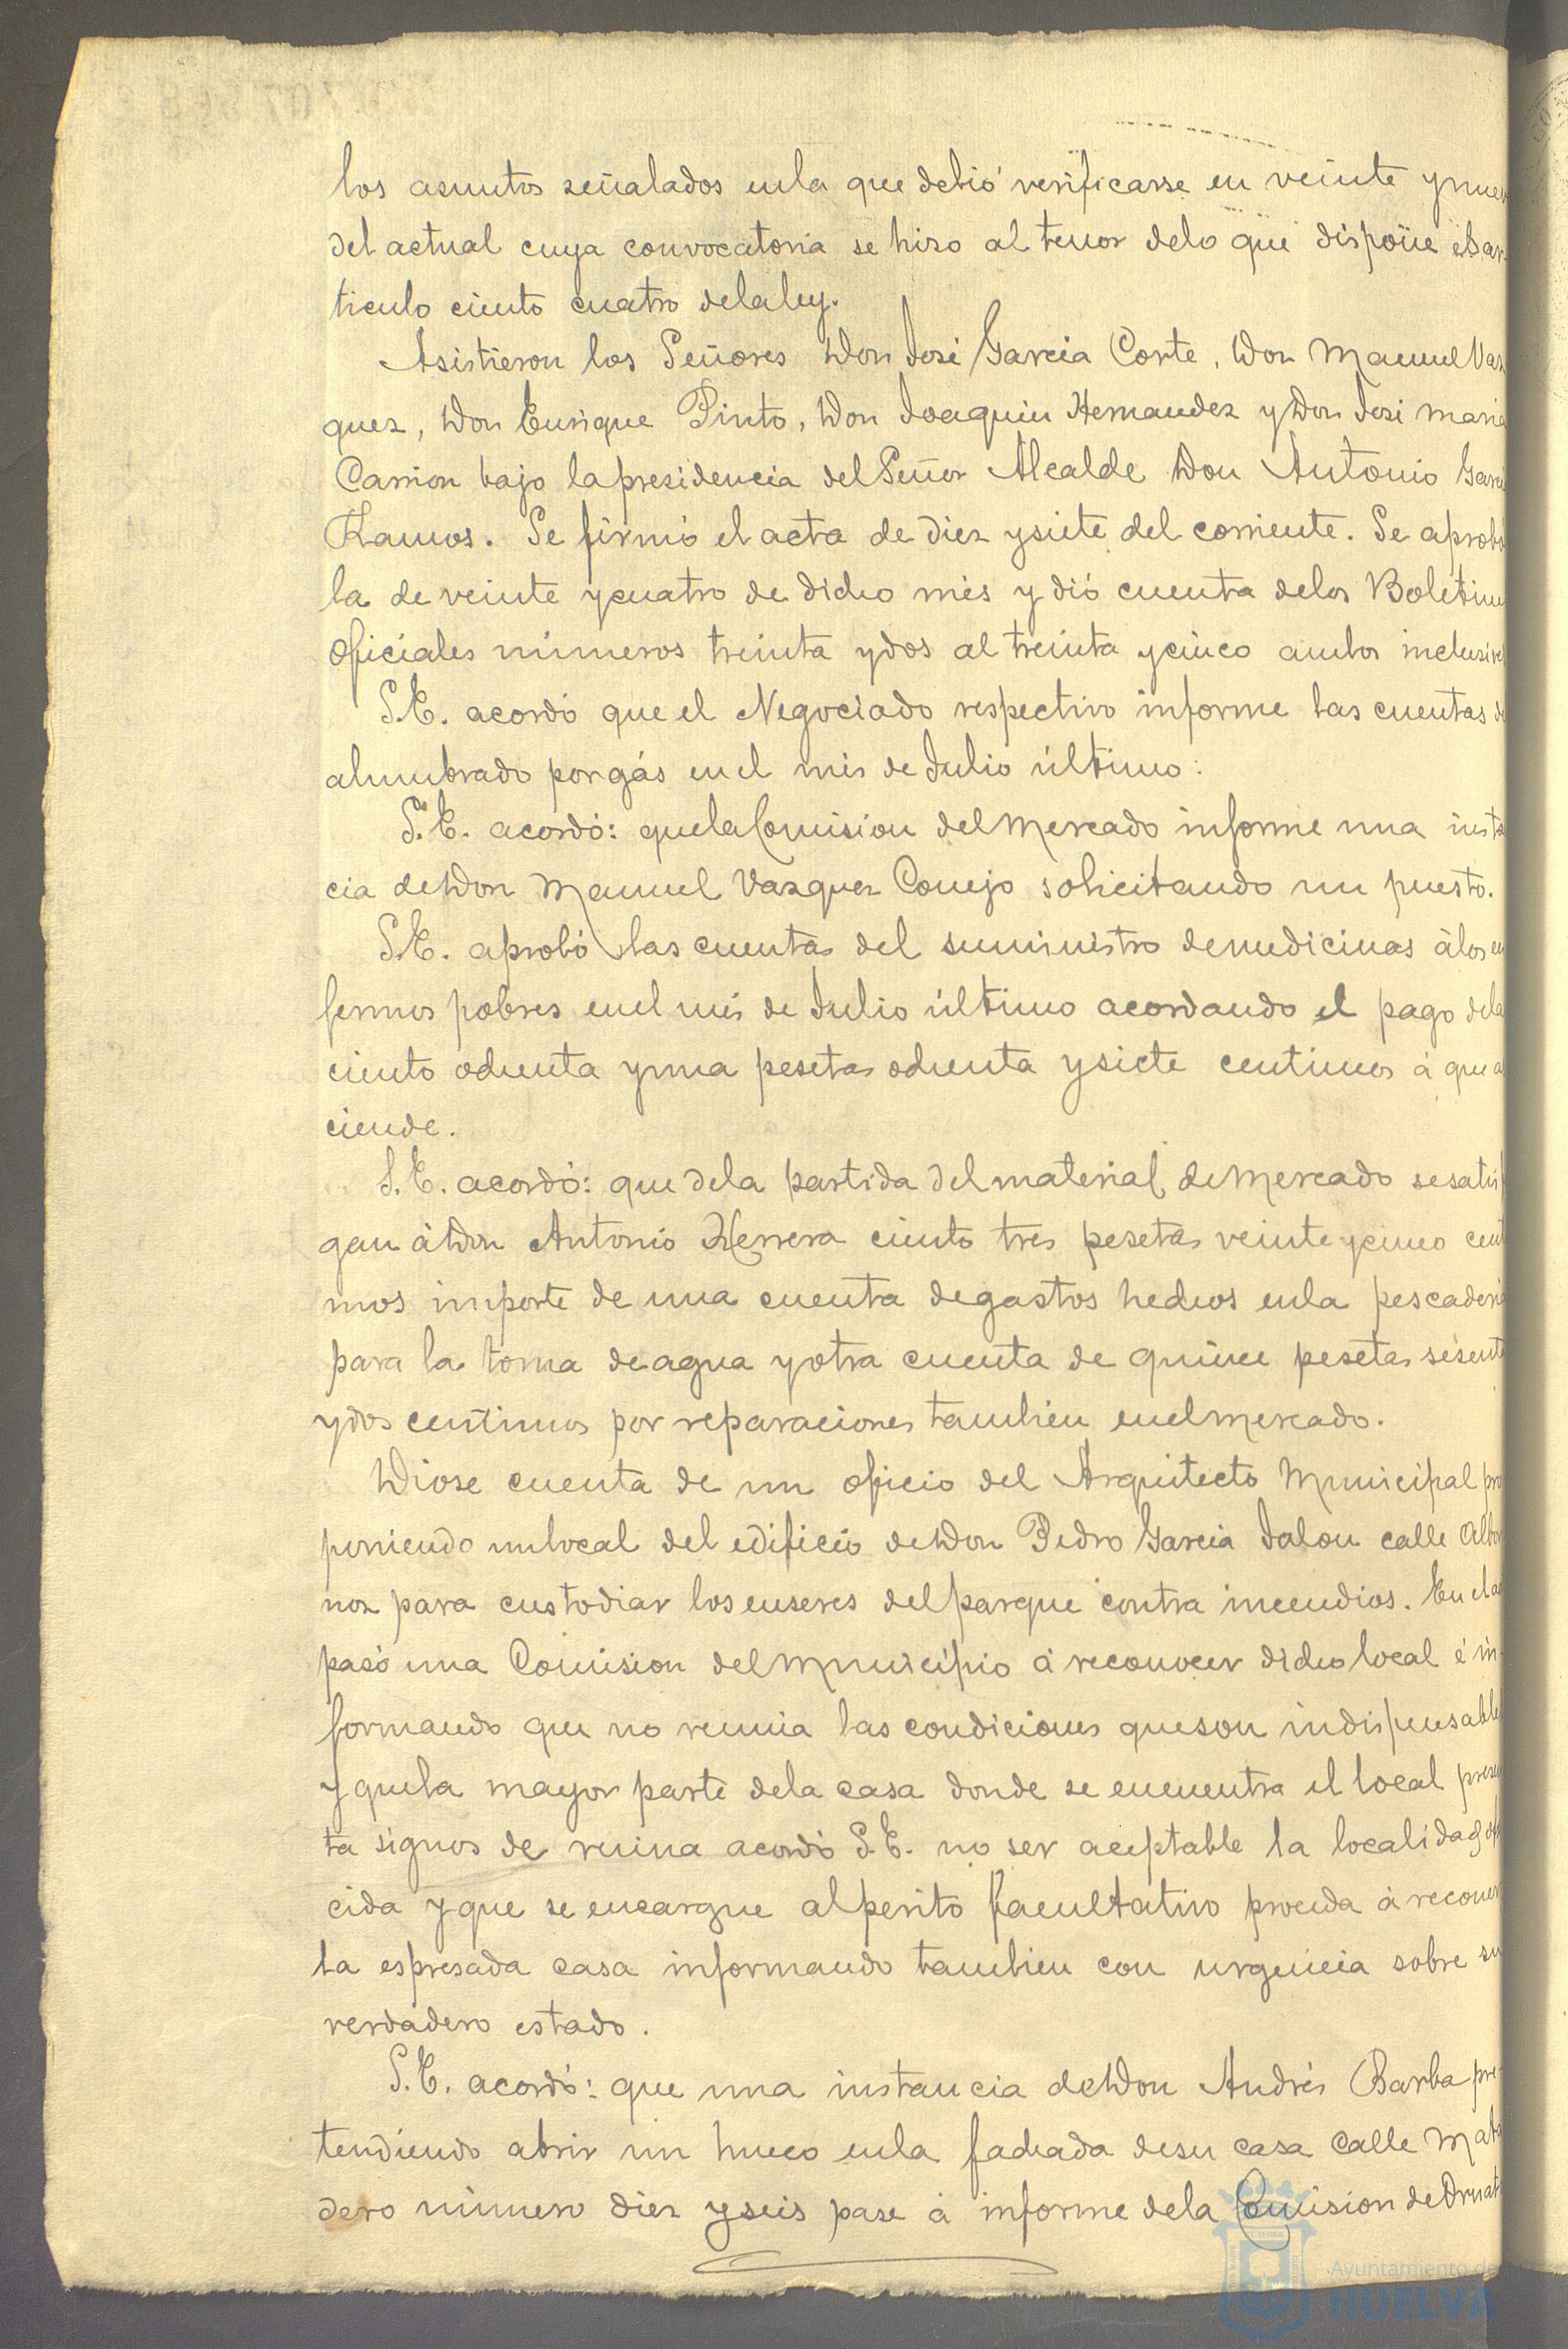 los asuntos señalados enla que debió verificarse en veinte ynuev
del actual cuya convocatoria se hizo al tenor delo que dispone el ar
ticulo ciento cuatro delaley.
Asistieron los Señores Don José Garcia Corte, Don Manuel Vaz
quez, Don Enrique Pinto, Don Joaquin Hernandez y Don José maria
Carrion bajo lapresidencia del Señor Alcalde Don Antonio Garci
Ramos. Se firmó el acta de diez ysiete del corriente. Se aprobó
la de veinte ycuatro de dicho més y dió cuenta delos Boletine
oficiales números treinta ydos al treinta ycinco ambos inclusive
S.E. acordó que el Negociado respectivo informe las cuentas de
alumbrado porgás enel més de Julio último:
S.E. acordó: quelaComision delMercado informe una insta
cia deDon Manuel Vazquez Conejo solicitando un puesto.
S.E. aprobó las cuentas del suministro demedicinas álos en
fermos pobres enel més de Julio último acordando el pago dela
ciento ochenta yuna pesetas ochenta ysiete centimos á que a
ciende.
S.E. acordó: que dela partida delmaterial demercado sesatisf
gan áDon Antonio Herrera ciento tres pesetas veinte ycinco cent
mos importe de una cuenta degastos hechos enla pescaderi
para la toma deagua yotra cuenta de quince pesetas sesent
ydos centimos por reparaciones tambien enelmercado.
Diose cuenta de un oficio del Arquitecto Municipal pro
poniendo unlocal del edificio deDon Pedro Garcia Jalon calle Albor
noz para custodiar losenseres delparque contra incendios. En el ac
pasó una Comision delmunicipio á reconocer dicho local é in-
formando que no reunia las condiciones queson indispensable
y quela mayor parte dela casa donde se encuentra el local presen
ta signos de ruina acordó S.E. no ser aceptable la localidad ofre
cida y que se encargue alperito facultativo proceda á reconer
la espresada casa informando tambien con urgencia sobre su
verdadero estado.
S.E. acordó: que una instancia deDon Andrés Barba pre-
tendiendo abrir un hueco enla fachada desu casa calle Mata
dero número diez yseis pase á informe dela Comision deOrnat
Ayuntamiento de
HUELVA